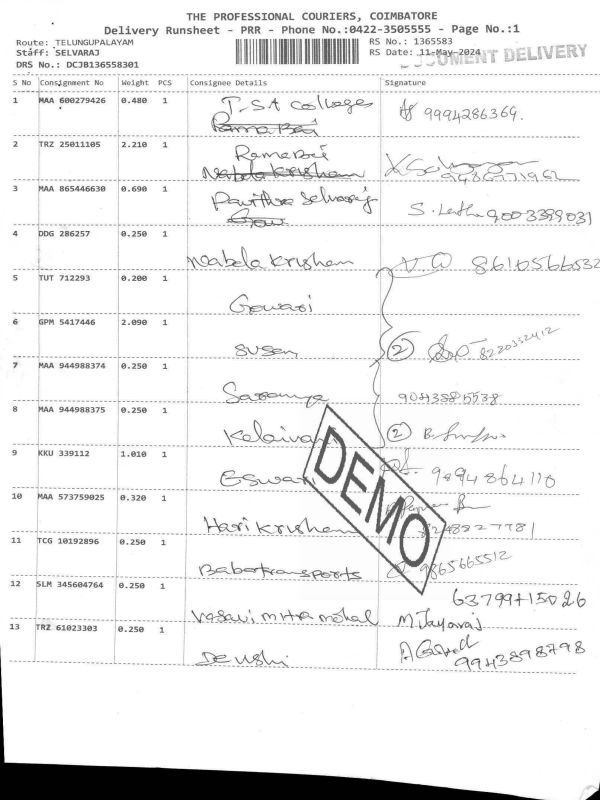 THE PROFESSIONAL COURIERS, COIMBATORE
Delivery Runsheet - PRR - Phone No.:0422-3505555 - Page No.:1
Route: TELUNGUPALAYAM RS No.: 1365583
Staff: SELVARAJ RS Date: 11-May-2024
DOCUMENT DELIVERY
DRS No.: DCJB136558301
S No Consignment No Weight PCS Consignee Details Signature
1 MAA 600279426 0.480 1 T.S.A Colleges 9994286369.
Rama Bai
2 TRZ 25011105 2.210 1 Rama Bai
Nabela Krisham
3 MAA 865446630 0.690 1 Parithra Selvaraj S. Latha 9003399031
Gow
4 DDG 286257 0.250 1 Nabela Krisham 8610566532
5 TUT 712293 0.200 1 Gowari
6 GPM 5417446 2.090 1 Susen 2 8220332412
7 MAA 944988374 0.250 1 Saranya 9043885538
8 MAA 944988375 0.250 1 Kalaivani 2
9 KKU 339112 1.010 1 Eswari 9894864110
10 MAA 573759025 0.320 1 Hari Krisham 8248827781
11 TCG 10192896 0.250 1 Baba transports 9865665512
12 SLM 345604764 0.250 1 Vasavi mitra mahal M Jayaraj
63799415026
13 TRZ 61023303 0.250 1 Denshi 9943898798
DEMO